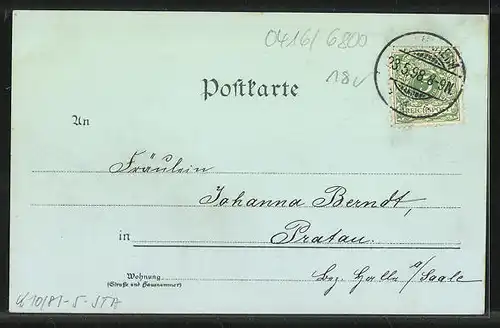 0416/6800
18v
23.5.98.8-9N.
REICHSPOST
Postkarte
An
Fräulein
Johanna Berndt,
in Pratau.
Bez. Halle a/Saale
Wohnung
(Straße und Hausnummer)